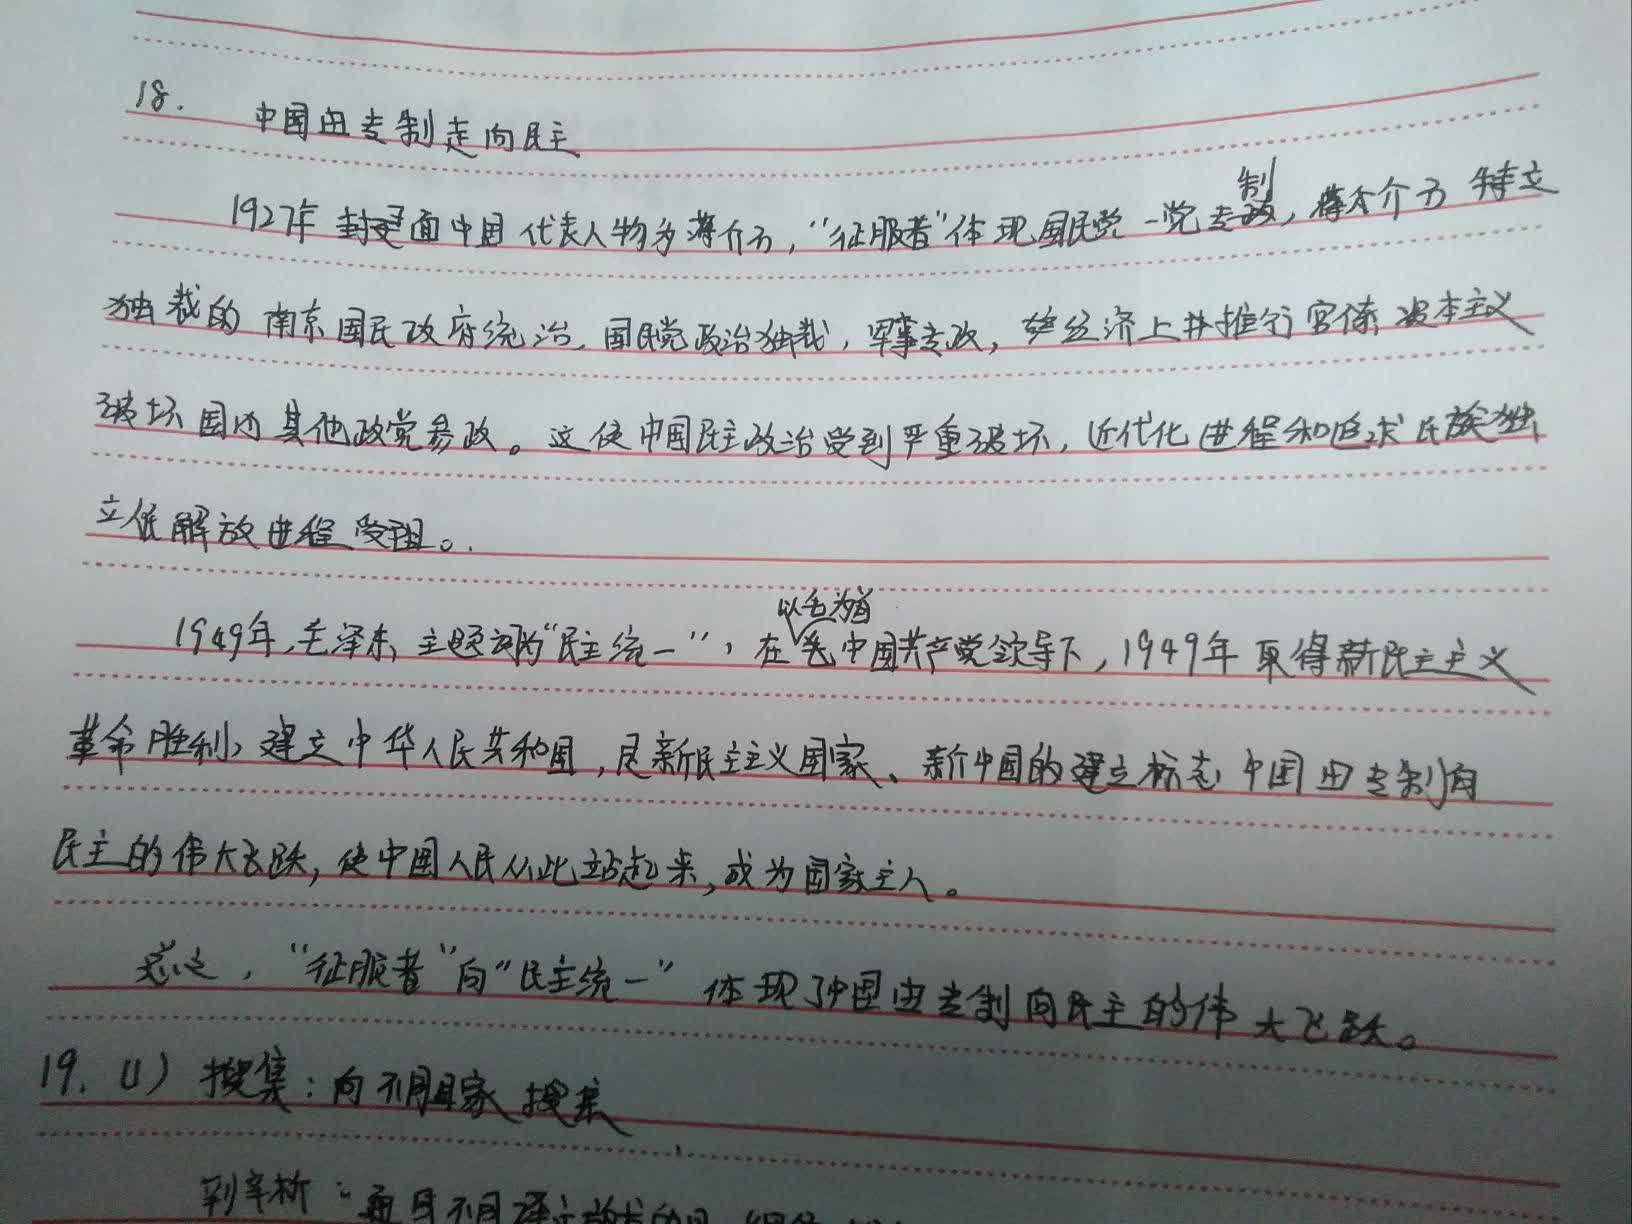 18. 中国由专制走向民主
1927年封建面中国代表人物为蒋介石，“征服者”体现国民党一党专制，蒋介石 特立
独裁的南京国民政府统治，国民党政治独裁，军事专政，经济上并推行官僚资本主义
破坏国内其他政党参政。这使中国民主政治受到严重破坏，近代化进程和追求民族独
立 解放进程受阻。
1949年，毛泽东，主题词为“民主统一”，在以毛为首中国共产党领导下，1949年取得新民主主义
革命胜利，建立中华人民共和国，是新民主主义国家、新中国的建立标志中国由专制向
民主的伟大飞跃，使中国人民从此站起来，成为国家主人。
总之，“征服者”向“民主统一”体现了中国由专制向民主的伟大飞跃。
19. (1) 搜集：向不同国家搜集